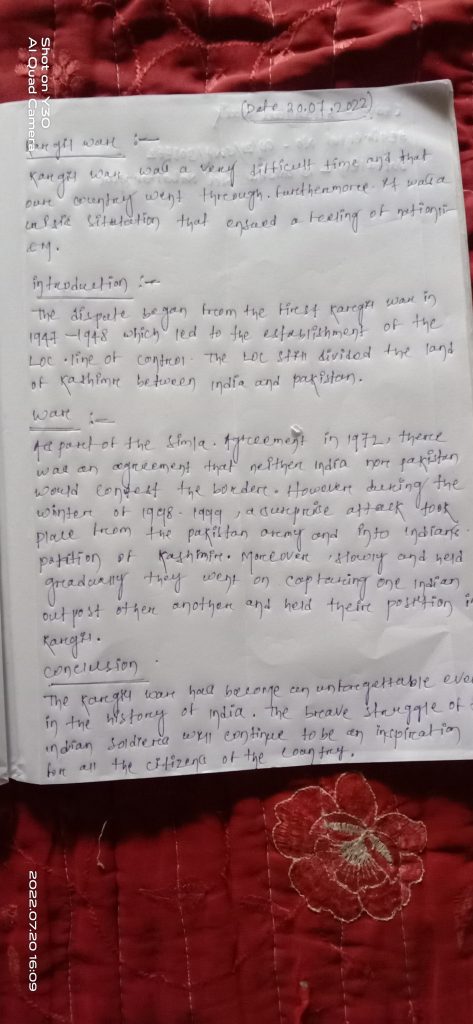 Shot on Y30
AI Quad Camera
(Date 20.07.2022)
Kargil war :-
Kargil war was a very difficult time and that
our country went through. Furthermore. It was a
crisis situtation that ensued a feeling of
introduction :-
The dispute began from the first Kargil war in
1947-1948 which led to the establishment of the
LOC. line of control. The LOC still divided the land
of Kashimir between india and pakistan.
War :-
As part of the Simla. Agreement in 1972, there
was an agreement that neither India nor pakistan
would contest the border. However during the
winter of 1998-1999, a surprise attack took
place from the pakistan army and into indians
of Kashmir. Moreover, slowly and held
gradually they went on capturing one Indian
outpost other another and held their position i
Kargil.
Conclusion
The Kargil war had become an unforgettable eve
in the history of india. The brave struggle of
indian soldiers will continue to be an inspiration
for all the citizens of the country.
2022.07.20 16:09